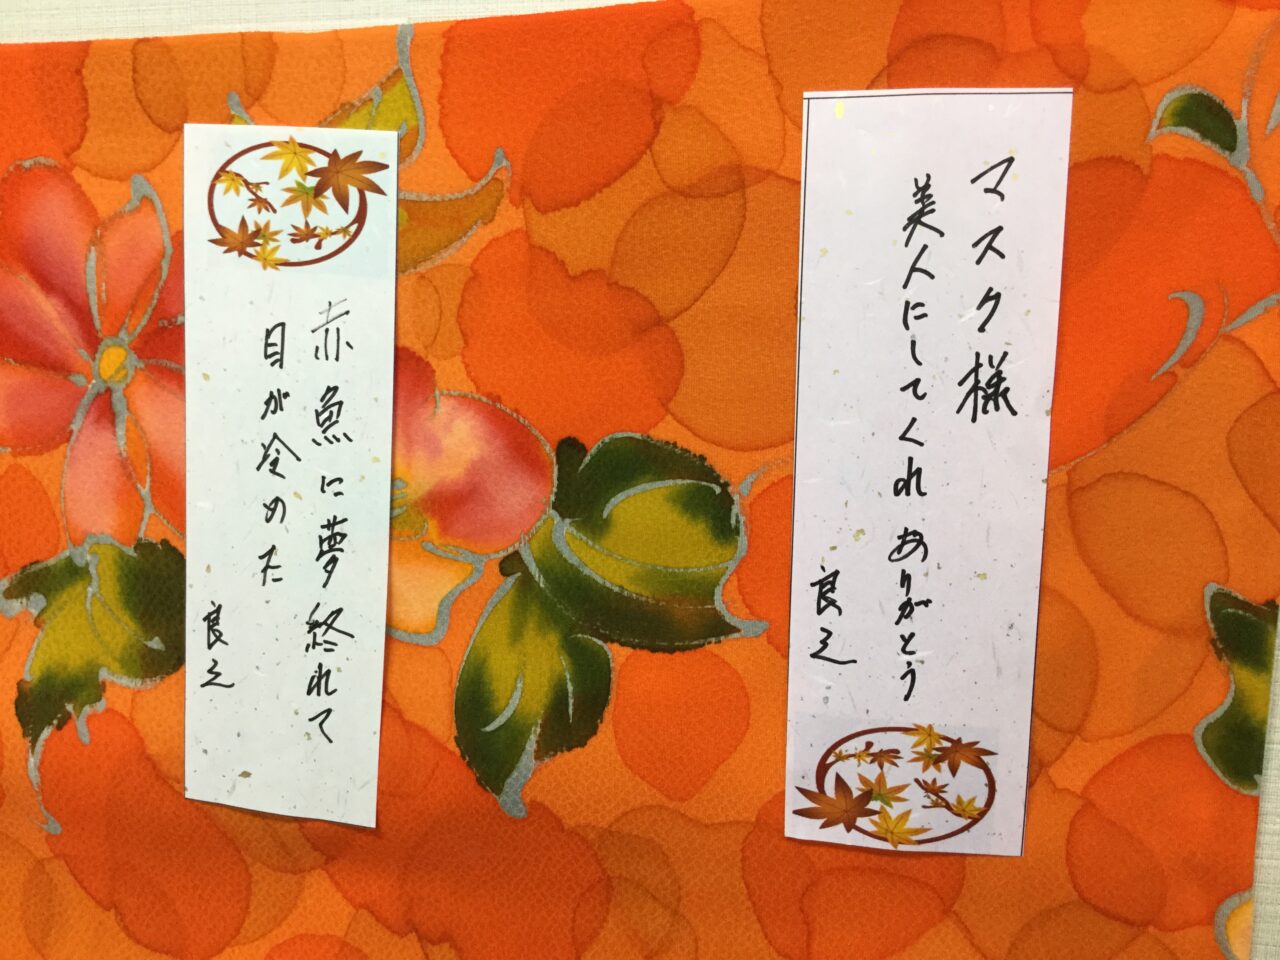 マスク様
美人にしてくれ ありがとう
良之
赤魚に夢終れて
目が冷めた
良之